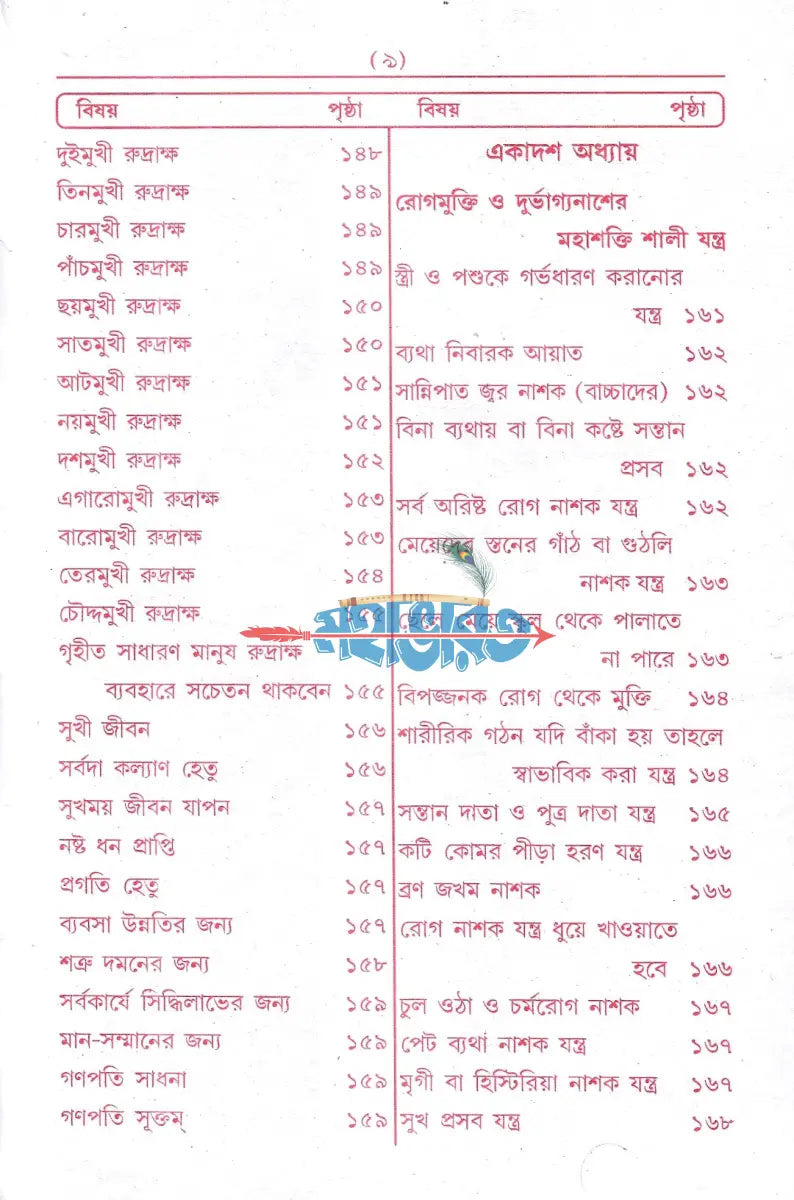 (৯)
বিষয় পৃষ্ঠা বিষয় পৃষ্ঠা
দুইমুখী রুদ্রাক্ষ ১৪৮
তিনমুখী রুদ্রাক্ষ ১৪৯
চারমুখী রুদ্রাক্ষ ১৪৯
পাঁচমুখী রুদ্রাক্ষ ১৪৯
ছয়মুখী রুদ্রাক্ষ ১৫০
সাতমুখী রুদ্রাক্ষ ১৫০
আটমুখী রুদ্রাক্ষ ১৫১
নয়মুখী রুদ্রাক্ষ ১৫১
দশমুখী রুদ্রাক্ষ ১৫২
এগারোমুখী রুদ্রাক্ষ ১৫৩
বারোমুখী রুদ্রাক্ষ ১৫৩
তেরমুখী রুদ্রাক্ষ ১৫৪
চৌদ্দমুখী রুদ্রাক্ষ ১৫৫
গৃহীত সাধারণ মানুষ রুদ্রাক্ষ
ব্যবহারে সচেতন থাকবেন ১৫৫
সুখী জীবন ১৫৬
সর্বদা কল্যাণ হেতু ১৫৬
সুখময় জীবন যাপন ১৫৭
নষ্ট ধন প্রাপ্তি ১৫৭
প্রগতি হেতু ১৫৭
ব্যবসা উন্নতির জন্য ১৫৭
শত্রু দমনের জন্য ১৫৮
সর্বকার্যে সিদ্ধিলাভের জন্য ১৫৯
মান-সম্মানের জন্য ১৫৯
গণপতি সাধনা ১৫৯
গণপতি সূক্তম্ ১৫৯
একাদশ অধ্যায়
রোগমুক্তি ও দুর্ভাগ্যনাশের
মহাশক্তি শালী যন্ত্র
স্ত্রী ও পশুকে গর্ভধারণ করানোর
যন্ত্র ১৬১
ব্যথা নিবারক আয়াত ১৬২
সান্নিপাত জ্বর নাশক (বাচ্চাদের) ১৬২
বিনা ব্যথায় বা বিনা কষ্টে সন্তান
প্রসব ১৬২
সর্ব অরিষ্ট রোগ নাশক যন্ত্র ১৬২
মেয়েদের স্তনের গাঁঠ বা গুঠলি
নাশক যন্ত্র ১৬৩
ছেলে মেয়ে স্কুল থেকে পালাতে
না পারে ১৬৩
বিপজ্জনক রোগ থেকে মুক্তি ১৬৪
শারীরিক গঠন যদি বাঁকা হয় তাহলে
স্বাভাবিক করা যন্ত্র ১৬৪
সন্তান দাতা ও পুত্র দাতা যন্ত্র ১৬৫
কটি কোমর পীড়া হরণ যন্ত্র ১৬৬
ব্রণ জখম নাশক ১৬৬
রোগ নাশক যন্ত্র ধুয়ে খাওয়াতে
হবে ১৬৬
চুল ওঠা ও চর্মরোগ নাশক ১৬৭
পেট ব্যথা নাশক যন্ত্র ১৬৭
মৃগী বা হিস্টিরিয়া নাশক যন্ত্র ১৬৭
সুখ প্রসব যন্ত্র ১৬৮
মহাভারত